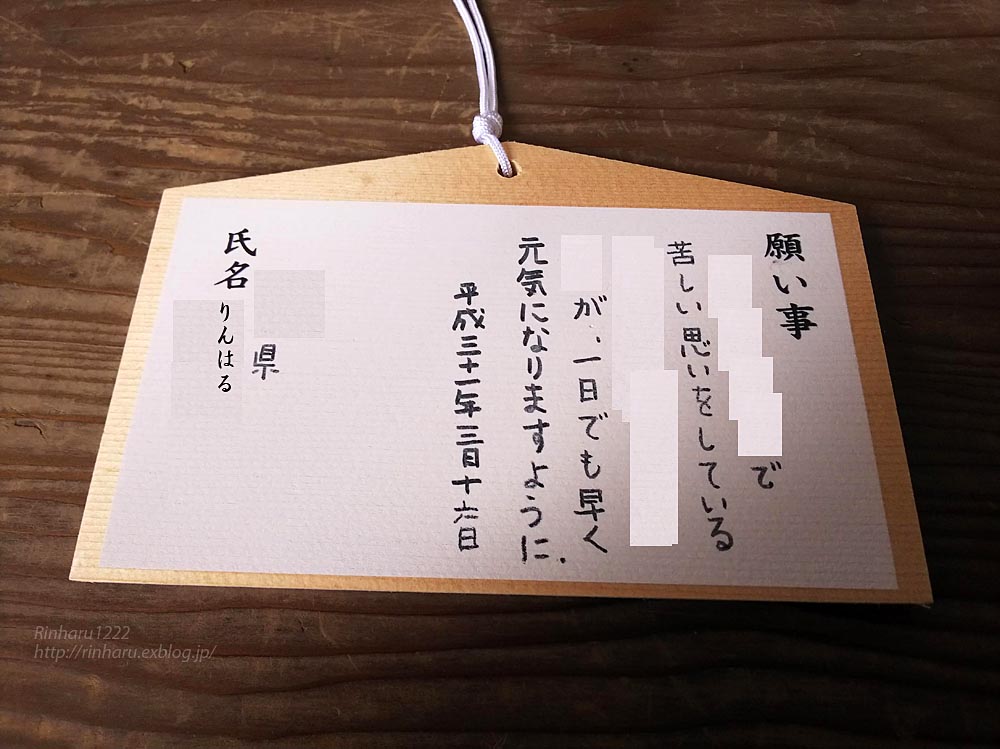 願い事
で
苦しい思いをしている
が、一日でも早く
元気になりますように.
平成三十一年三月十六日
県
氏名 りんはる
Rinharu1222
http://rinharu.exblog.jp/